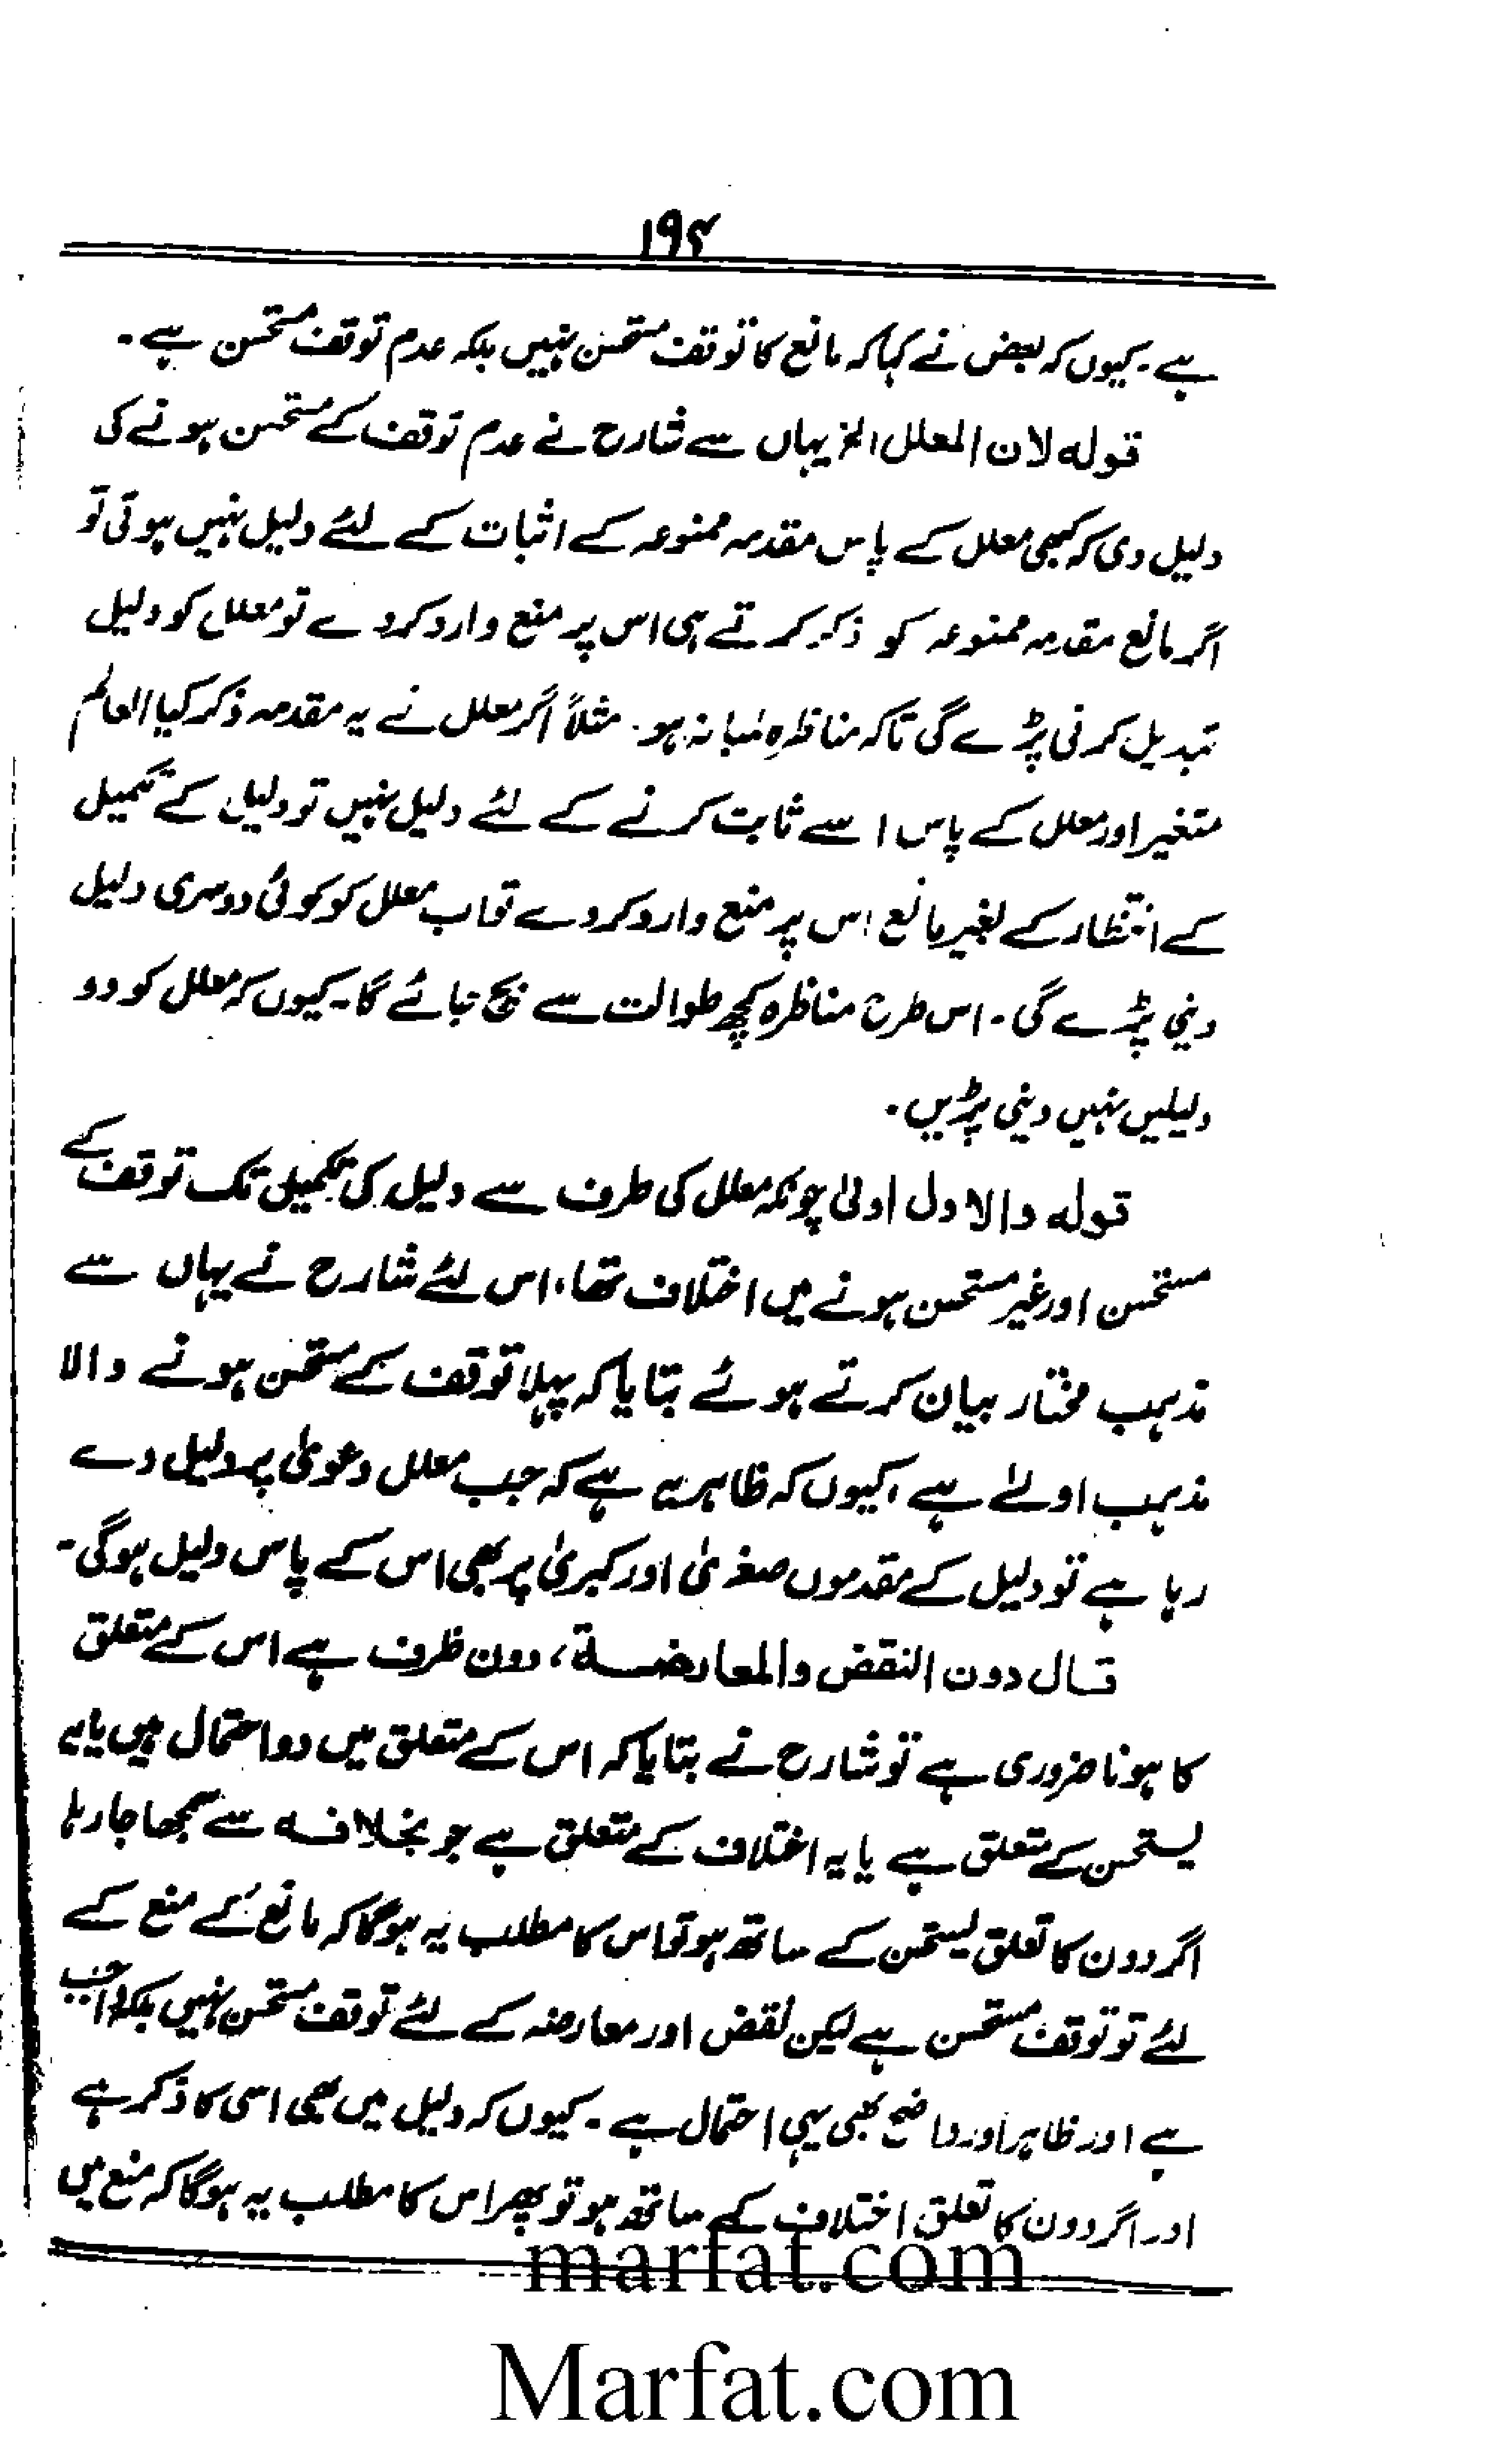 ۱۹۴
ہے ۔ کیوں کہ بعض نے کہا کہ مانع کا توقف مستحسن نہیں بلکہ عدم توقف مستحسن ہے ۔
قولہ لان المعلل الخ یہاں سے شارح نے عدم توقف کے مستحسن ہونے کی
دلیل دی کہ کبھی معلل کے پاس مقدمہ ممنوعہ کے اثبات کے لئے دلیل نہیں ہوتی تو
اگر مانع مقدمہ ممنوعہ کو ذکر کرتے ہی اس پر منع وارد کردے تو معلل کو دلیل
تبدیل کرنی پڑے گی تاکہ مناظرہ لمبا نہ ہو ۔ مثلاً اگر معلل نے یہ مقدمہ ذکر کیا العالم
متغیر اور معلل کے پاس اسے ثابت کرنے کے لئے دلیل نہیں تو دلیل کے تکمیل
کے انتظار کے بغیر مانع اس پر منع وارد کردے تو اب معلل کو کوئی دوسری دلیل
دینی پڑے گی ۔ اس طرح مناظرہ کچھ طوالت سے بچ جائے گا ۔ کیوں کہ معلل کو دو
دلیلیں نہیں دینی پڑیں ۔
قولہ والاول اولیٰ چونکہ معلل کی طرف سے دلیل کی تکمیل تک توقف کے
مستحسن اور غیر مستحسن ہونے میں اختلاف تھا، اس لئے شارح نے یہاں سے
مذہب مختار بیان کرتے ہوئے بتایا کہ پہلا توقف کے مستحسن ہونے والا
مذہب اولےٰ ہے ، کیوں کہ ظاہر یہ ہے کہ جب معلل دعویٰ پر دلیل دے
رہا ہے تو دلیل کے مقدموں صغریٰ اور کبریٰ پر بھی اس کے پاس دلیل ہوگی ۔
قال دون النقض والمعارضة ، دون ظرف ہے اس کے متعلق
کا ہونا ضروری ہے تو شارح نے بتایا کہ اس کے متعلق میں دو احتمال ہیں یا یہ
یستحسن کے متعلق ہے یا یہ اختلاف کے متعلق ہے جو بخلافہ سے سمجھا جا رہا
اگر دون کا تعلق یستحسن کے ساتھ ہو تو اس کا مطلب یہ ہوگا کہ مانع کے منع کے
لئے تو توقف مستحسن ہے لیکن نقض اور معارضہ کے لئے توقف مستحسن نہیں بلکہ واجب
ہے اور ظاہر اور واضح بھی یہی احتمال ہے ۔ کیوں کہ دلیل میں بھی اسی کا ذکر ہے
اور اگر دون کا تعلق اختلاف کے ساتھ ہو تو پھر اس کا مطلب یہ ہوگا کہ منع میں
marfat.com
Marfat.com